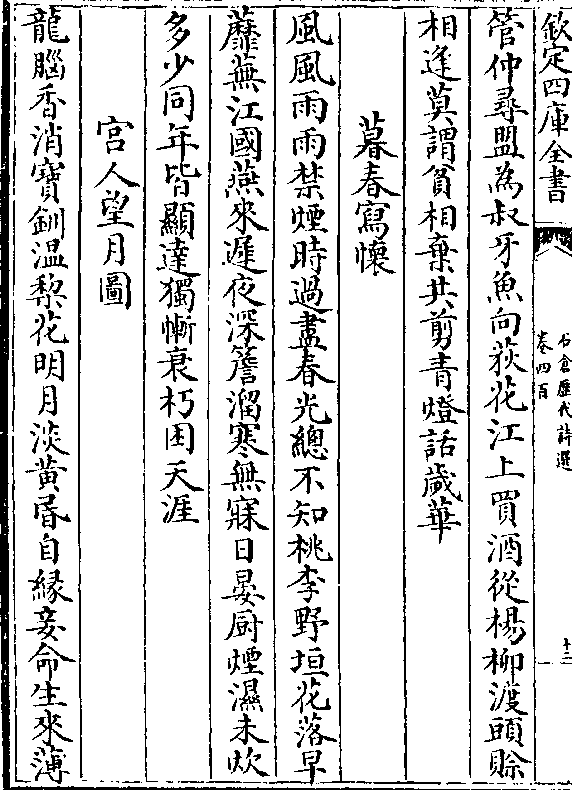 欽定四庫全書
石倉歷代詩選
卷四百
十二
管仲尋盟為叔牙魚向荻花江上買酒從楊柳渡頭賒
相逢莫謂貧相棄共剪青燈話歲華
暮春寫懷
風風雨雨禁煙時過盡春光總不知桃李野垣花落早
蘼蕪江國燕來遲夜深簷溜寒無寐日晏厨煙濕未炊
多少同年皆顯達獨慚衰朽困天涯
宫人望月圖
龍腦香消寶釧温梨花明月淡黄昏自緣妾命生來薄